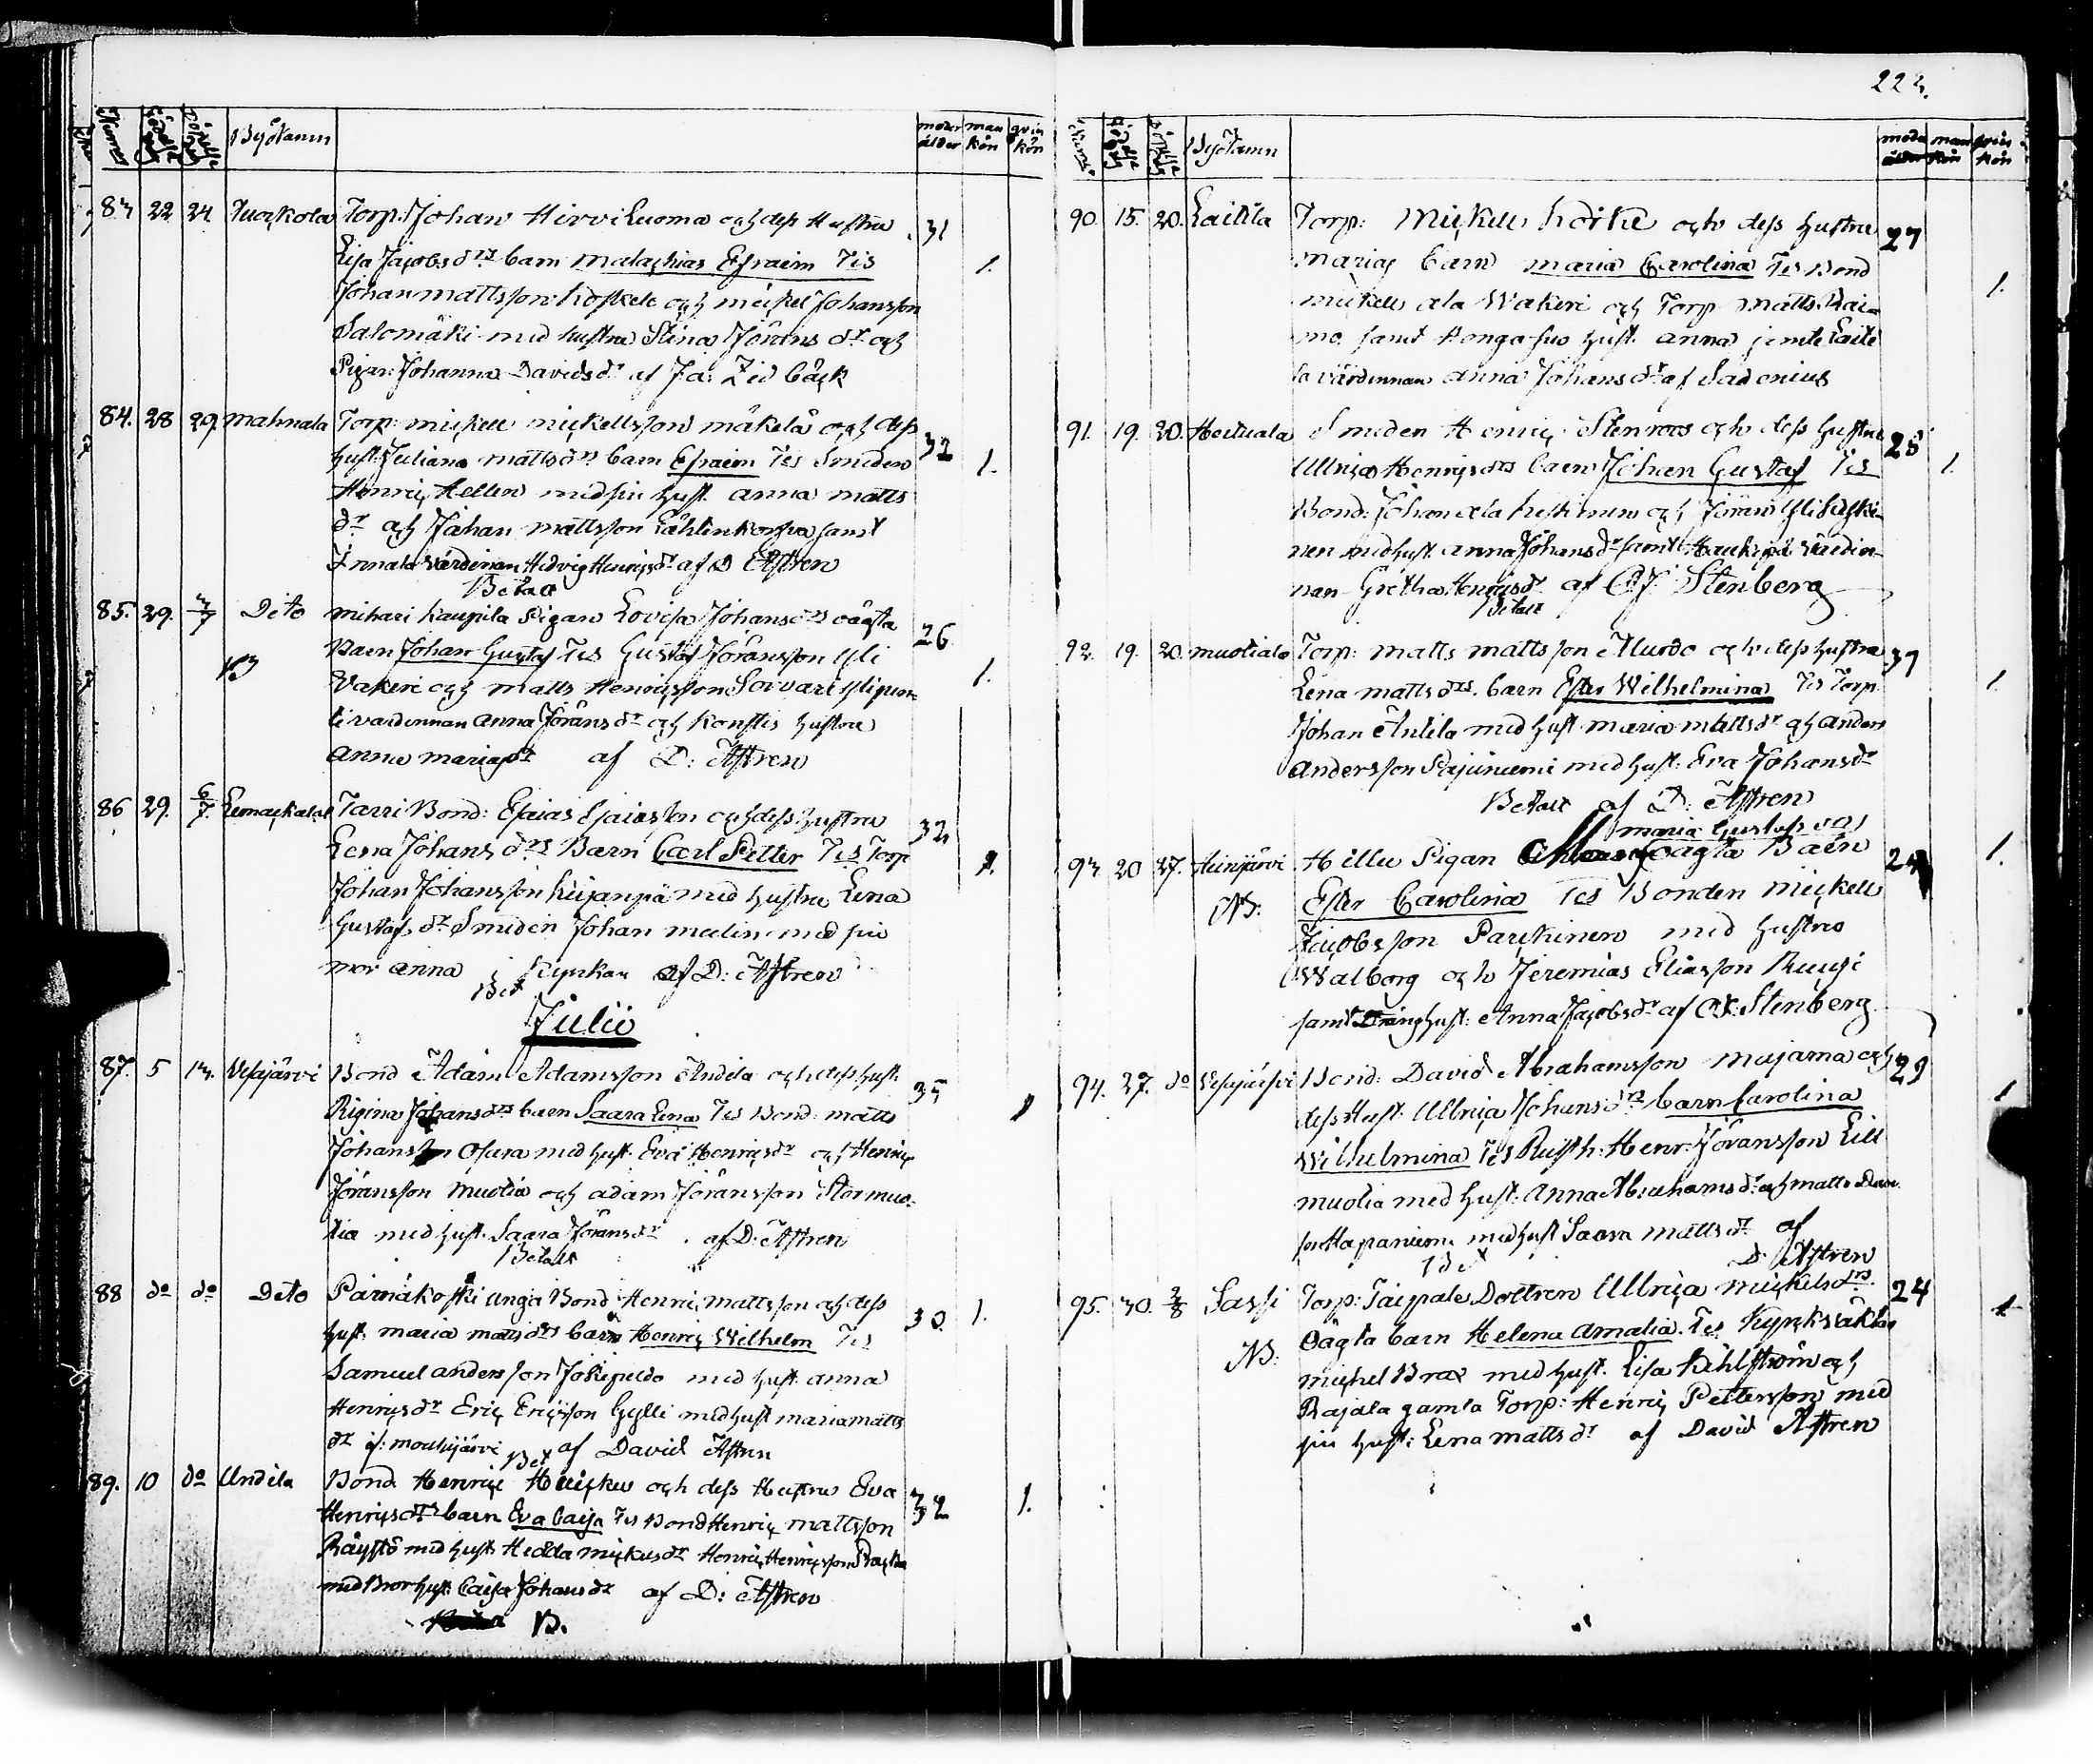 223.
Numer Födelse dag Döpelse dag Bynamn moder ålder man kön qvin kön
83 22 24 Tuorkola Torp. Johan Hirviluoma och dess Hustru 31
Lisa Jacobs dr barn Malachias Efraim Tes 1.
Johan Mattsson Koskele och Mickel Johansson
Salomäki med hustru Stina Jörans dr och
Pigan Johanna Davids dr af Ja: Zidbäck
84. 28 29. Mahnala Torp. Mickell Mickellsson Mäkelä och dess 32
hust. Juliana Matts drs barn Efraim Tes Smeden 1.
Henric Hellen med sin hust. Anna Matts
dr och Johan Mattsson samt
Innala Värdinnan Hedvig Henrics dr af D Astren
Betalt
85. 29. 3/7 Dito Mihari Kaupila Pigan Lovisa Johans drs oägta 26
Barn Johan Gustaf Tes Gustaf Joransson Yli 1.
Vakeri och Matts Henricsson Sorvari
värdinnan Anna Jörans dr och hustru
Anna Maria dr af D: Astren
86 29. 6/7. Lemackala Tarri Bond: Esaias Esaiasson och dess hustru 32
Lena Johans drs Barn Carl Petter Tes Torp 1.
Johan Johansson Kujanpä med hustru Lena
Gustafs dr Smeden Johan Melin med sin
mor Anna i Kyrkan af D: Astren
Bet
Julii
87. 5 13. Vesajärvi Bond Adam Adamsson Andila och dess hust. 35
Rigina Johans drs barn Saara Lena Tes Bond: Matts 1
Johansson Osara med hust. Eva Henrics dr och Henric
Joransson Muotia och Adam Joransson Stormuo-
tia med hust. Saara Jörans dr af D: Astren
Betalt
88 do do Dito Pärnäkoski unga Bond Henric Mattsson och dess 30. 1.
hust. Maria Matts drs barn Henric Wilhelm Tes
Samuel Andersson Jokipeldo med hust. Anna
Henrics dr Eric Ericsson Gylli med hust Maria Matts
dr if: Mouhijärvi Bet af David Astren
89. 10 do Undila Bond Henric Huickus och dess Hustru Eva 32 1.
Henrics drs barn Eva Caisa Tes Bond Henric Mattsson
Räystö med hust. Hedda Mickels dr Henric Henricsson
med Bror hust. Caisa Johans dr af D: Astren
B.
Numer Födelse dag Döpelse dag Bynamn moder ålder man kön qvin kön
90. 15. 20. Laitila Torp: Mickell Körke och dess hustru 27
Marias barn Maria Carolina Tes Bond 1.
Mickell ala Wakeri och Torp Matts Rai-
mo samt Hongasuo hust. Anna jemte Laiti
la värdinnan Anna Johans dr af Sadenius
91. 19. 20. Heituala Smeden Henric Stenroos och dess Hustru 28
Ullrica Henrics drs barn Johan Gustaf Tes 1.
Bond: Johan ala och Jöran
nen med hust. Anna Johans dr samt Haukijä Värdin-
nan Gretha Henrics dr af C.J. Stenberg
Betalt
92. 19. 20. Muotiala Torp: Matts Mattsson Murdo och dess hustru 37
Lena Matts drs. barn Ester Wilhelmina Tes Torp. 1.
Johan Antila med hust. Maria Matts dr och Anders
Andersson Rajuniemi med hust: Eva Johans dr
Betalt af D: Astren
Maria Gustafs drs
93 20 27. Heinijärvi Hillu Pigan oägta Barn 24 1.
NB: Ester Carolina Tes Bonden Mickell
Jacobsson Parckinen med hustru
Walborg och Jeremias Eliasson Ruugi
samt Dräng hust: Anna Jacobs dr af C.J: Stenberg
94. 27. do Vesajärvi Bond: David Abrahamsson Mujama och 29
dess Hust. Ullrica Johans drs barn Carolina 1
Wilhelmina Tes Rusth: Henr: Joransson Lill
muotia med hust: Anna Abrahams dr och Matts Dan
son Hapaniemi med hust Saara Matts dr af
Bet D. Astren
95. 30. 2/8 Sassi Torp: Taipale Dottren Ullrica Mickels drs. 24
NB: Oägta barn Helena Amalia. Tes Kyrckväktar 1
Mickel Brax med hust. Lisa Kihlström och
Rajala gamla Torp: Henric Pettersson med
sin hust: Lena Matts dr af David Astren